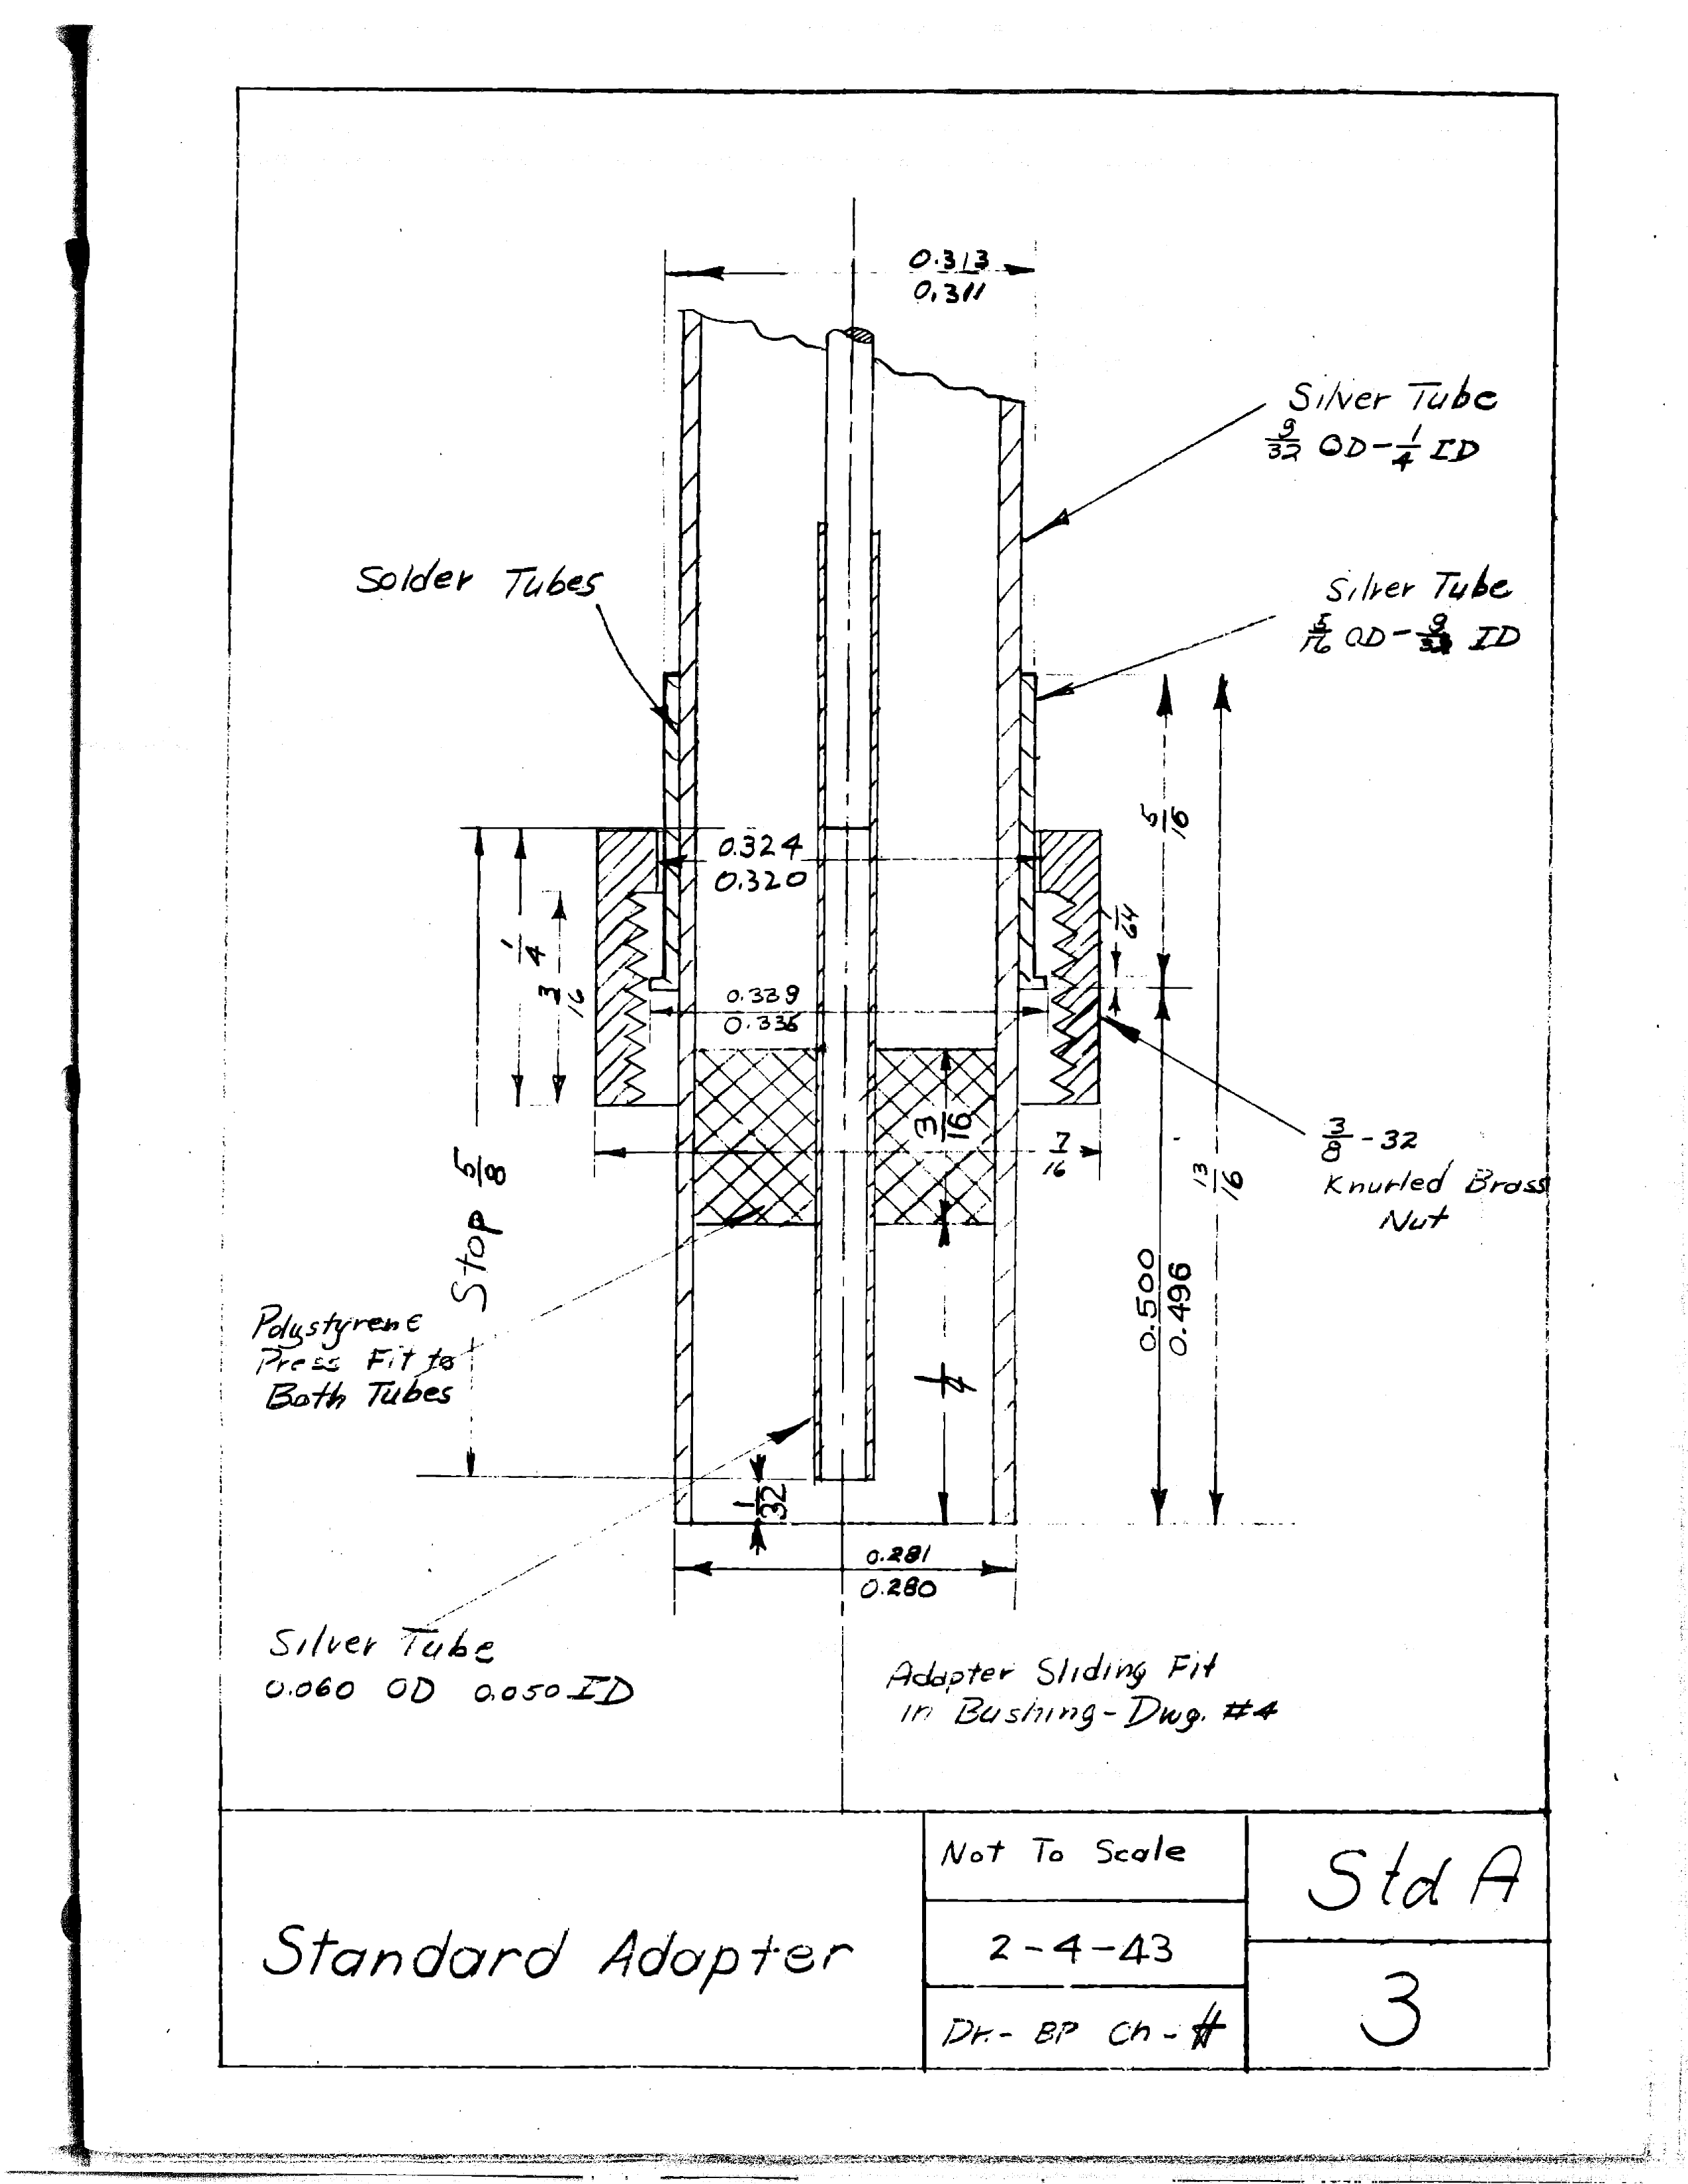 0.313
0.311
Silver Tube
9/32 OD-1/4 ID
Solder Tubes
Silver Tube
5/16 OD-9/32 ID
5/16
0.324
0.320
1/64
1/4
3/16
0.339
0.335
3/16
7/16
3/8-32
Knurled Brass
Nut
13/16
Stop 5/8
0.500
0.496
Polystyrene
Press Fit to
Both Tubes
1/4
1/32
0.281
0.280
Silver Tube
0.060 OD 0.050 ID
Adapter Sliding Fit
in Bushing-Dwg. #4
Standard Adapter
Not To Scale
2-4-43
Dr.- BP Ch-
Std A
3